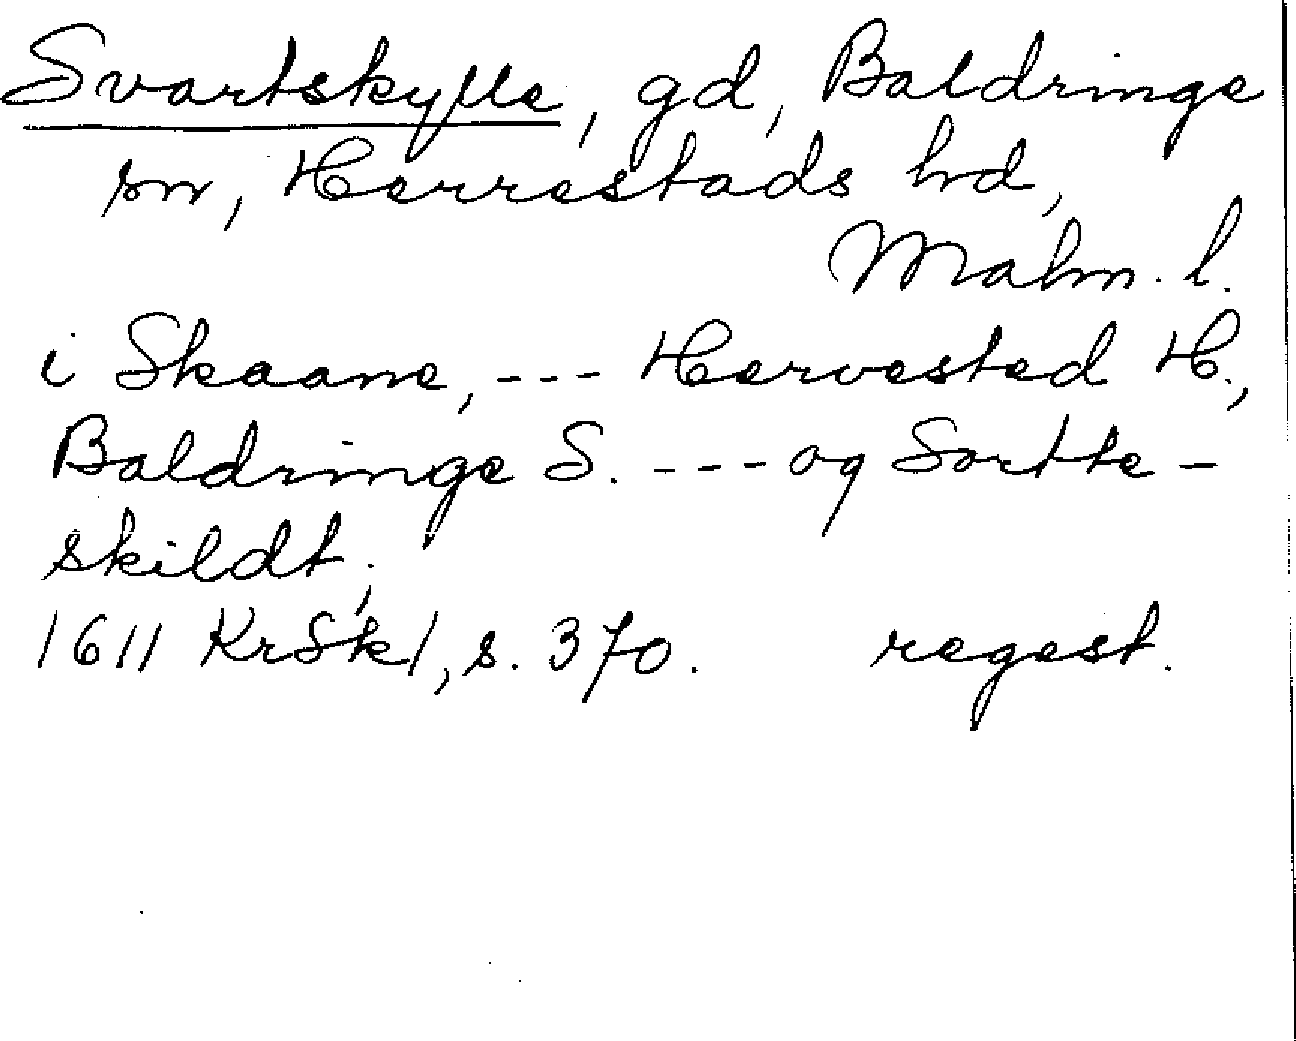 Svartskylle, gd, Baldringe
sn, Herrestads hd,
Malm. l.
i Skaane, --- Hervested H.,
Baldringe S. --- og Sortte-
skildt,
1611 KrSk 1, s. 370. regest.